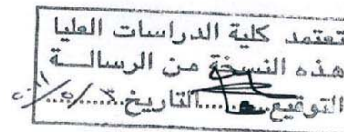 تعتمد كلية الدراسات العليا
هذه النسخة من الرسالــة
التوقيع.........التاريخ